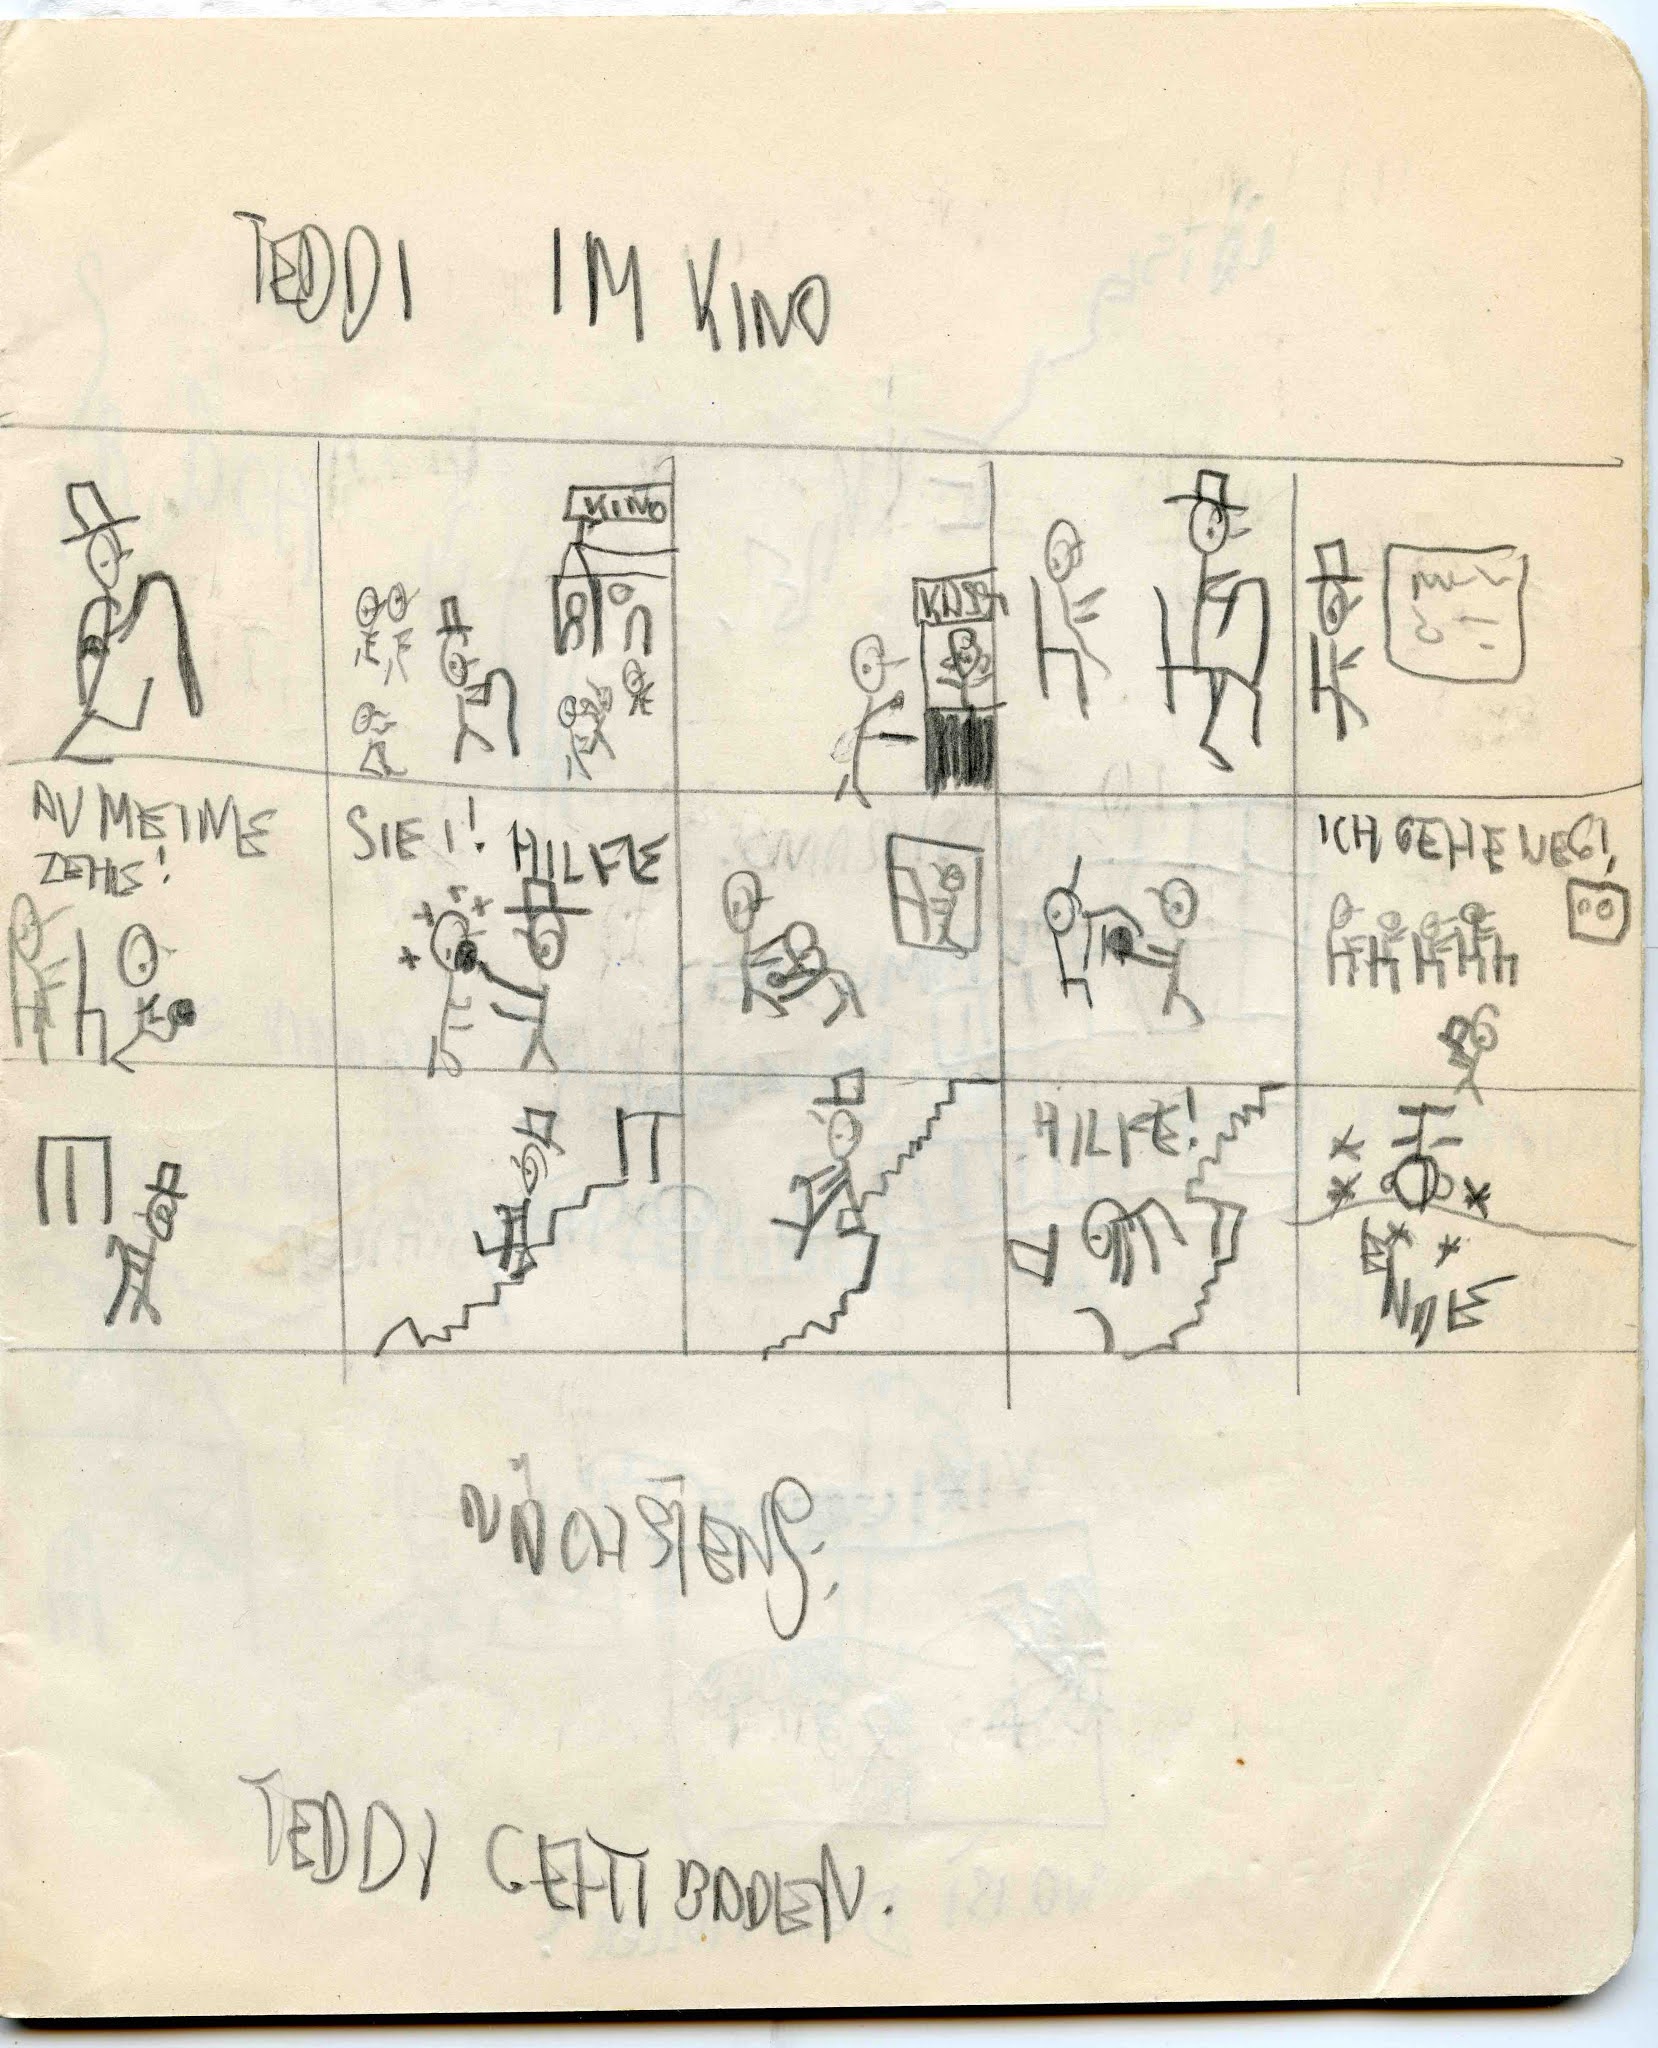 TEDDI IM KINO
KINO
KASS
AU MEINE
ZEHE!
SIE!! HILFE
ICH GEHE WEG!
HILFE!
NÄCHSTENS:
TEDDY GEHT BADEN.